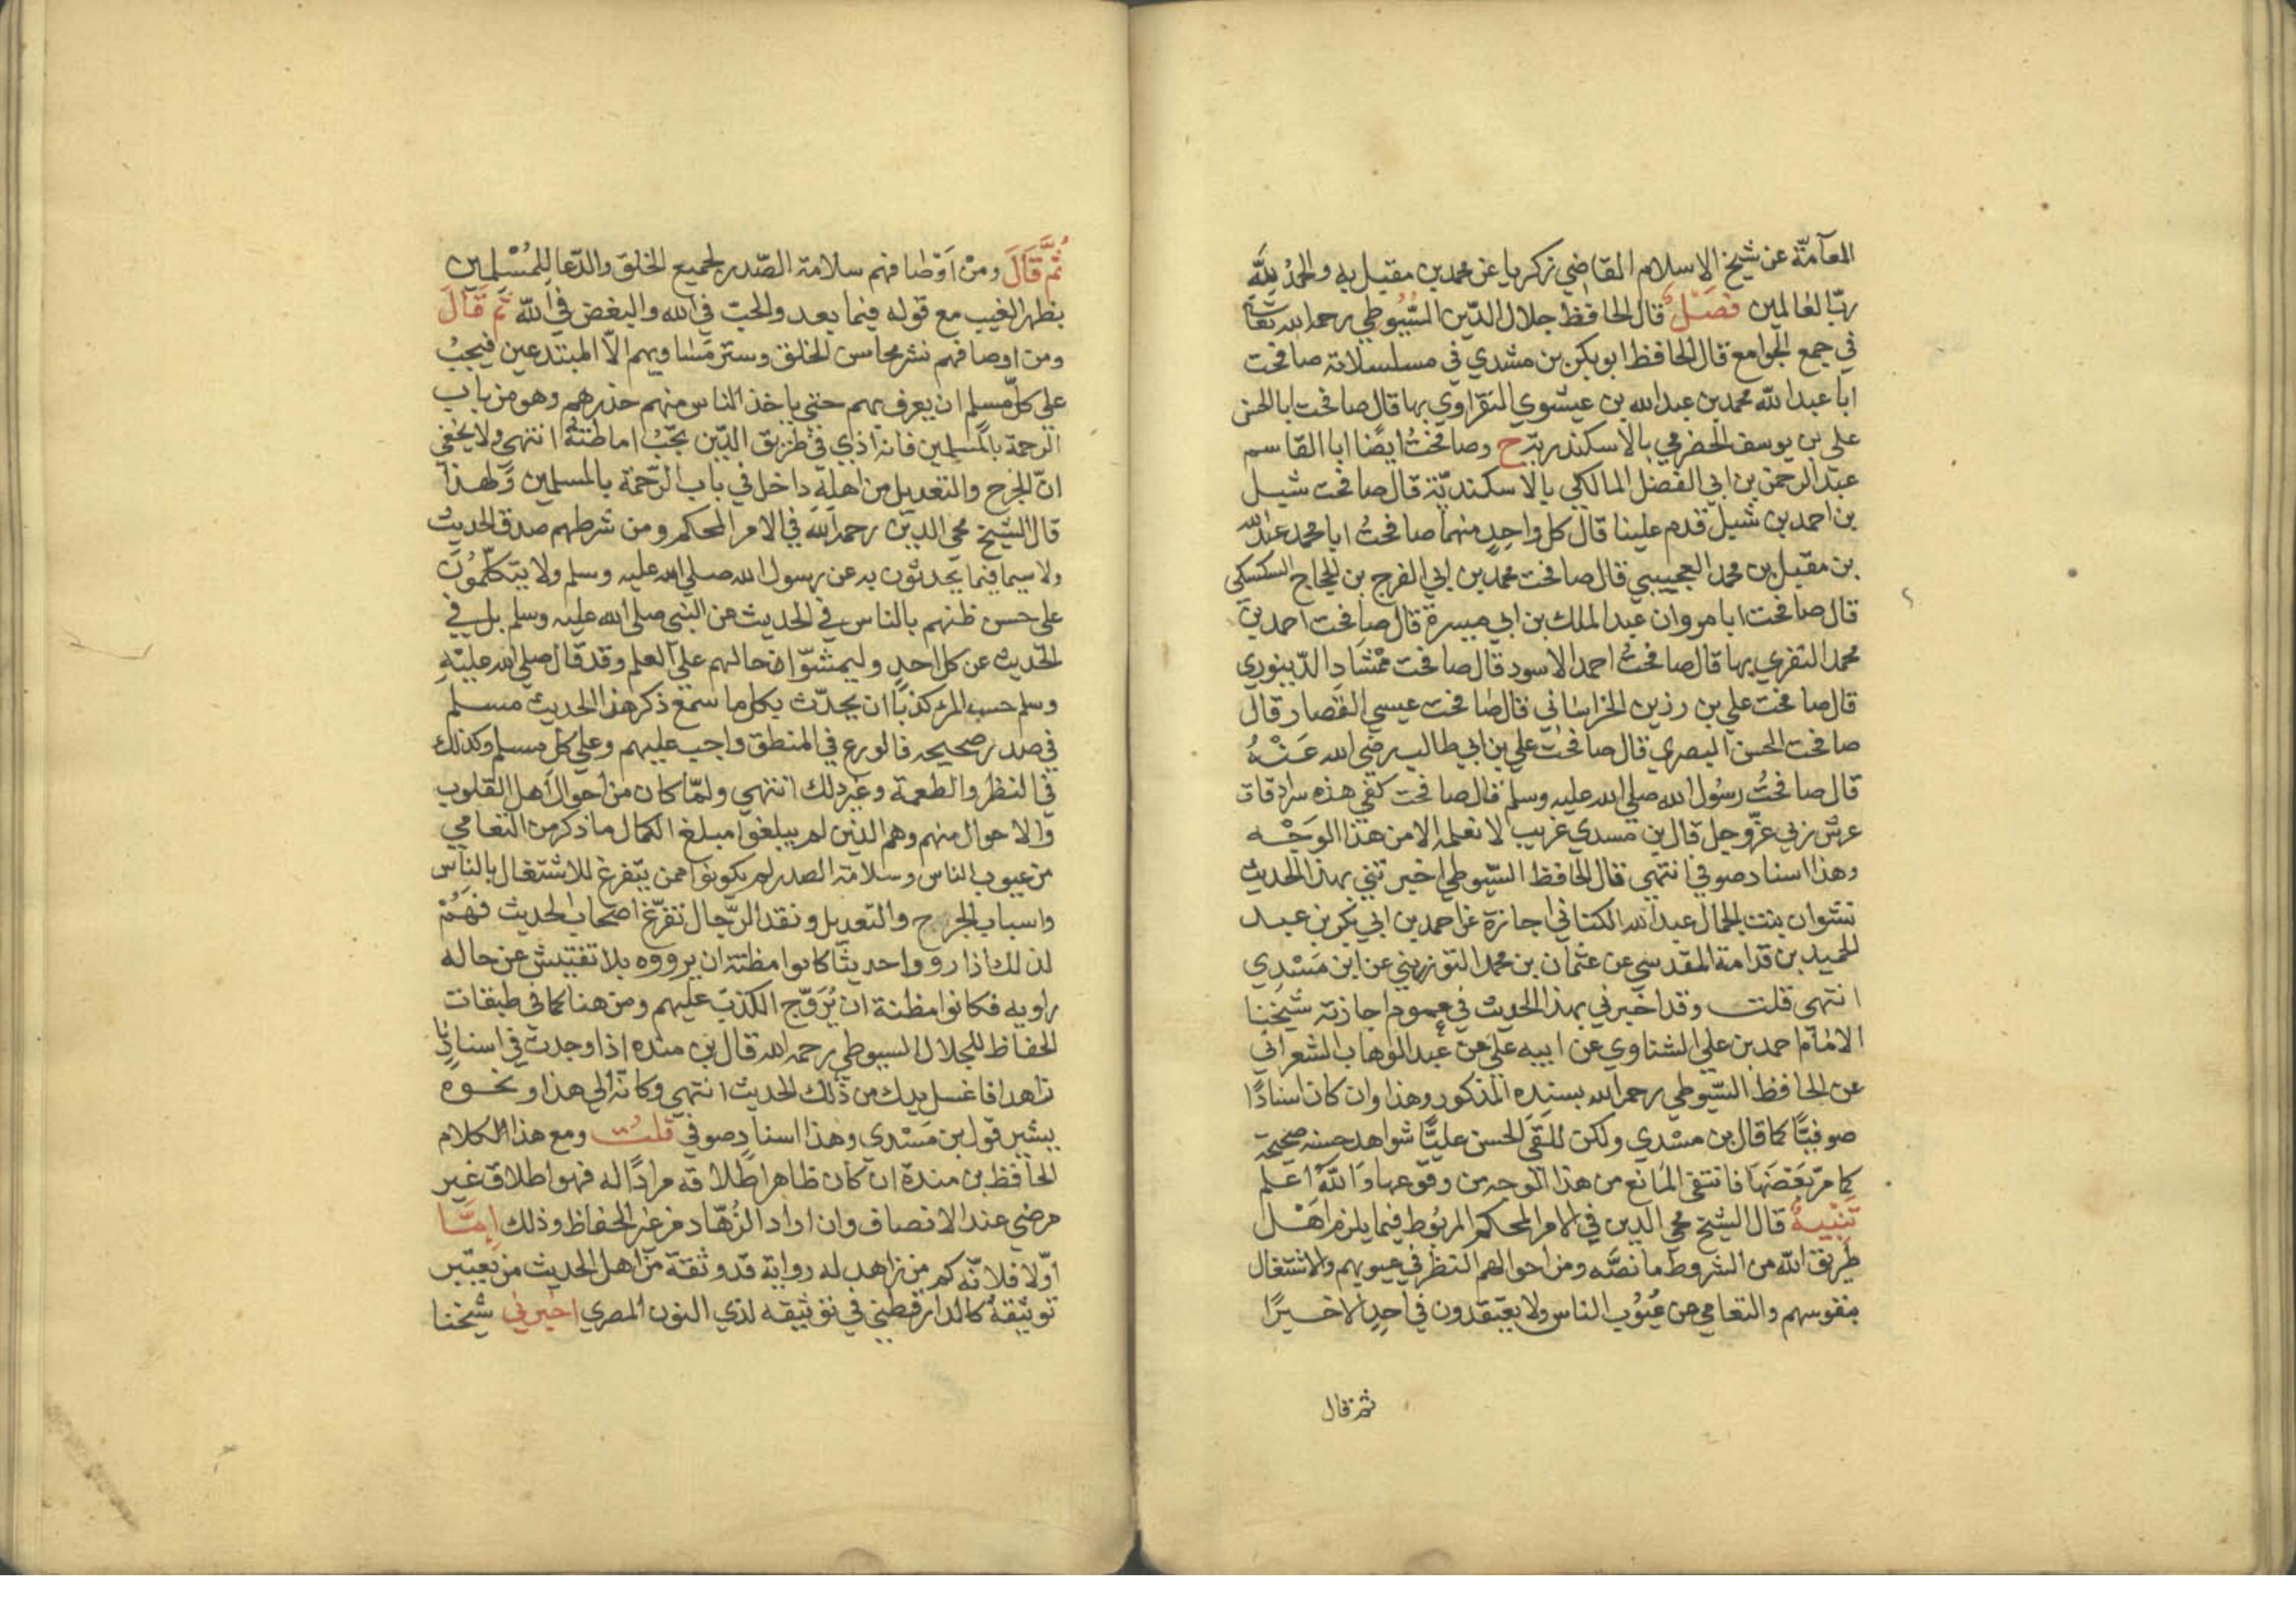 العآمّة عن شيخ الاسلام القاضي زكريا عن محمد بن مقبل به والحمدُ لِلَّهِ
ربّ العالمين فصْلٌ قال الحافظ جلال الدّين السُّيُوطي رحمه الله تعالى
في جمع الجوامع قال الحافظ ابو بكر بن مسْدي في مسلسلاته صافحت
ابا عبد الله محمد بن عبد الله بن عيشوي النقزاوي بها قال صافحت ابا الحسن
علي بن يوسف الحضرمي بالاسكندرية ح وصافحْتُ ايضًا ابا القاسم
عبد الرحمن بن ابي الفضل المالكي بالاسكندريّة قال صافحت شبل
بن احمد بن شبل قدم علينا قال كل واحدٍ منهما صافحتُ ابا محمد عبد الله
بن مقبل بن محمد العجيبي قال صافحت محمد بن ابي الفرج بن الحجاج السكسكي
قال صافحت ابا مروان عبد الملك بن ابي ميسرة قال صافحت احمد بن
محمد النقزي بها قال صافحتُ احمد الاسود قال صافحت ممْشادِ الدّينوري
قال صافحت علي بن رزين الخراساني قال صافحت عيسي القصار قال
صافحت الحسن البصري قال صافحت علي بن ابي طالب رضي الله عَنْهُ
قال صافحْتُ رسُول الله صلي الله عليه وسلم قال صافحت كفي هذه سرادقات
عرش ربي عزّ وجل قال بن مسدي غريب لا نعلمه الا من هذا الوَجْه
وهذا اسناد صوفي انتهى قال الحافظ السّيوطي اخبرتني بهذا الحديث
نشوان بنت الجمال عبد الله الكناني اجازة عن احمد بن ابي بكر بن عبد
الحميد بن قدامة المقدسي عن عثمان بن محمد التوزريني عن ابن مَسْدي
انتهى قلت وقد اخبرني بهذا الحديث في عموم اجازته شيْخنا
الامام احمد بن علي الشناوي عن ابيه علي عن عبد الوهاب الشعراني
عن الحافظ السّيوطي رحمه الله بسنده المذكور وهذا وان كان اسنادًا
صوفيًّا كما قال بن مسْدي ولكن للقَى الحسن عليًّا شواهد حسنه صحيحة
كما مرّ بَعْضهَا فانتفي المانع من هذا الوجه من وقوعها وَاللّهُ اعلم
تَنْبيهٌ قال الشيخ محي الدين في الامر المحكم المربُوط فيما يلزم اهْل
طريق الله من الشروط ما نصّه ومن احوالهم النظر في عيوبهم والاشتغال
بنفوسهم والتعامي عن عُيُوب الناس ولا يعتقدون في احدٍ الا خيرًا
ثم قال
ثُمَّ قَالَ ومنْ اوْصافهم سلامة الصّدر لجميع الخلق والدّعا لِلمُسْلمين
بظهر الغيب مع قوله فيما بعد والحبّ في الله والبغض في اللّه ثمّ قَالَ
ومن اوصافهم نشر محاسن الخلق وستر مسَاويهم الاّ المبتدعين فيجبُ
علي كلّ مسلم ان يعرف بهم حتي ياخذ الناس منهم حذرهم وهو من باب
الرحمة بالمسلمين فانه اذي في طريق الدّين يجبُ اماطتهُ انتهى ولا يخفي
انّ الجرح والتعديل من اهله داخل في باب الرّحمة بالمسلمين ولهذا
قال الشيخ محي الدين رحمه الله في الامر المحكم ومن شرطهم صدق الحديث
ولا سيما فيما يحدثون به عن رسول الله صلي الله عليه وسلم ولا يتكلّمُون
علي حسن ظنهم بالناس في الحديث عن النبي صلى الله عليه وسلم بل في
الحديث عن كل احدٍ وليمشّوا في حالهم علي العلم وقد قال صلي الله عليه
وسلم حسب المرء كذبًا ان يحدّث بكل ما سمع ذكر هذا الحديث مسلم
في صدر صحيحه فالورع في المنطق واجب عليهم وعلي كل مسلم وكذلك
في النظر والطعمة وغير ذلك انتهي ولمّا كان من احوال اهل القلوب
والاحوال منهم وهم الذين لم يبلغوا مبلغ الكمال ما ذكر من التعامي
من عيوب الناس وسلامة الصدر لم يكونوا ممن يتفرغ للاشتغال بالناس
واسباب الجرح والتعديل ونقد الرّجال تفرّغ اصحاب الحديث فهُمْ
لذلك اذا رووا حديثًا كانوا مظنة ان يرووه بلا تفتيش عن حاله
راويه فكانوا مظنة ان يُرَوّج الكذبُ عليهم ومن هنا كما في طبقات
الحفاظ للجلال السيوطي رحمه الله قال بن منده اذا وجدت في اسنادٍ
زاهدا فاغسل يدك من ذلك الحديث انتهي وكانّه الي هذا ونحوه
يشير قول بن مَسْدي وهذا اسناد صوفي قلتُ ومع هذا الكلام
الحافظ بن مندة ان كان ظاهر اطلاقه مرادًا له فهو اطلاق غير
مرضي عند الانصاف وان اراد الزُهّاد من غير الحفاظ وذلك امَّا
اوّلا فلانّه كم من زاهد له رواية قد وثقه من اهل الحديث من يعتبر
توثيقهُ كالدارقطني في توثيقه لذي النون المصري اخبرني شيْخنا